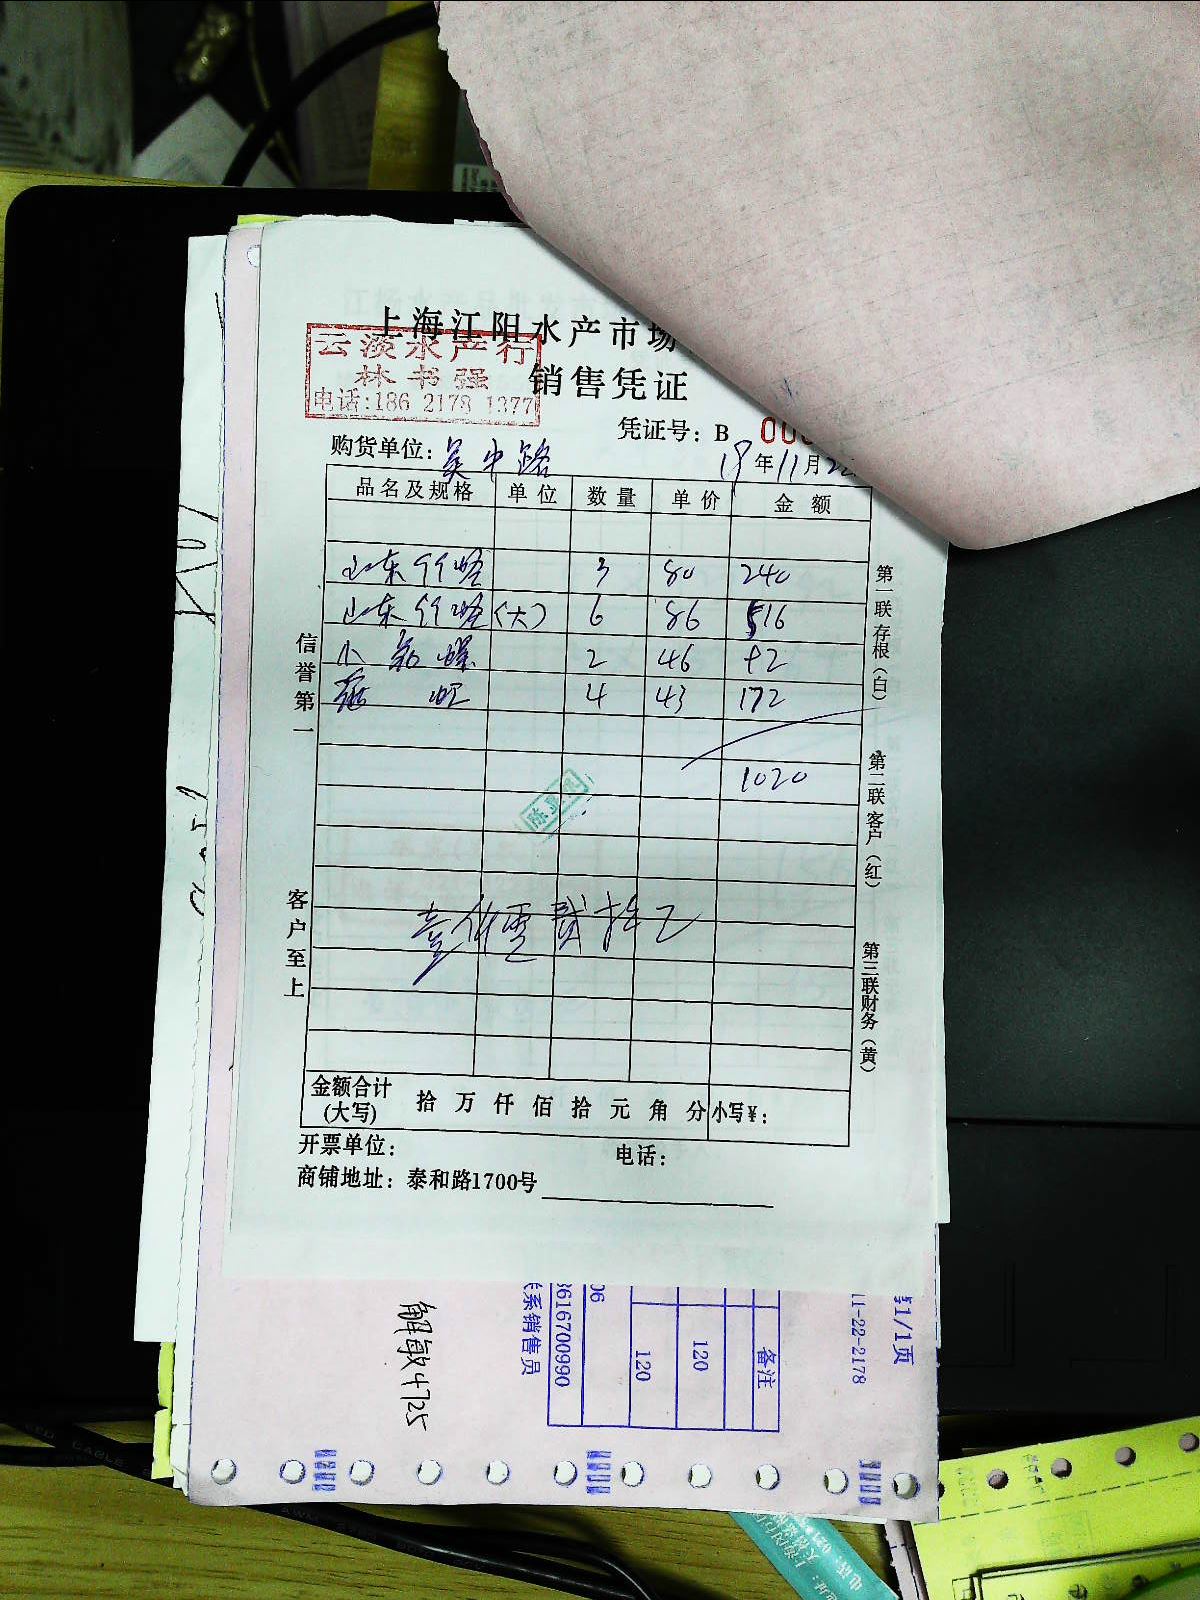 上海江阳水产市场
云淡水产行
林书强
电话:186 2178 1377
销售凭证
凭证号: B 00
购货单位: 吴中路
19年11月22
品名及规格 单位 数量 单价 金额
山东竹蛏 3 80 240
山东竹蛏(大) 6 86 516
小 螺 2 46 92
虹 4 43 172
1020
壹仟零贰拾
信誉第一
客户至上
第一联存根(白)
第二联客户(红)
第三联财务(黄)
金额合计(大写) 拾 万 仟 佰 拾 元 角 分 小写¥:
开票单位: 电话:
商铺地址: 泰和路1700号
第1/1页
11-22-2178
备注
120
120
06
3616700990
联系销售员
解敏4725